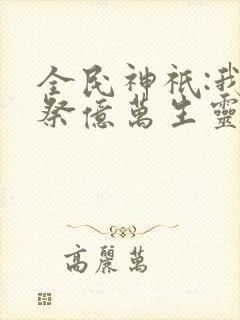 全民神祇:我
祭億萬生靈
高麗萬